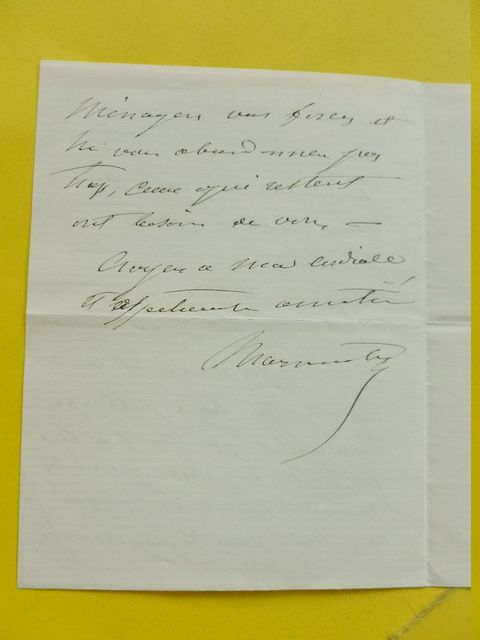 Ménagez vos forces et
ne vous abandonnez pas
trop, ceux qui restent
ont besoin de vous, —
Croyez à ma cordiale
et affectueuse amitié